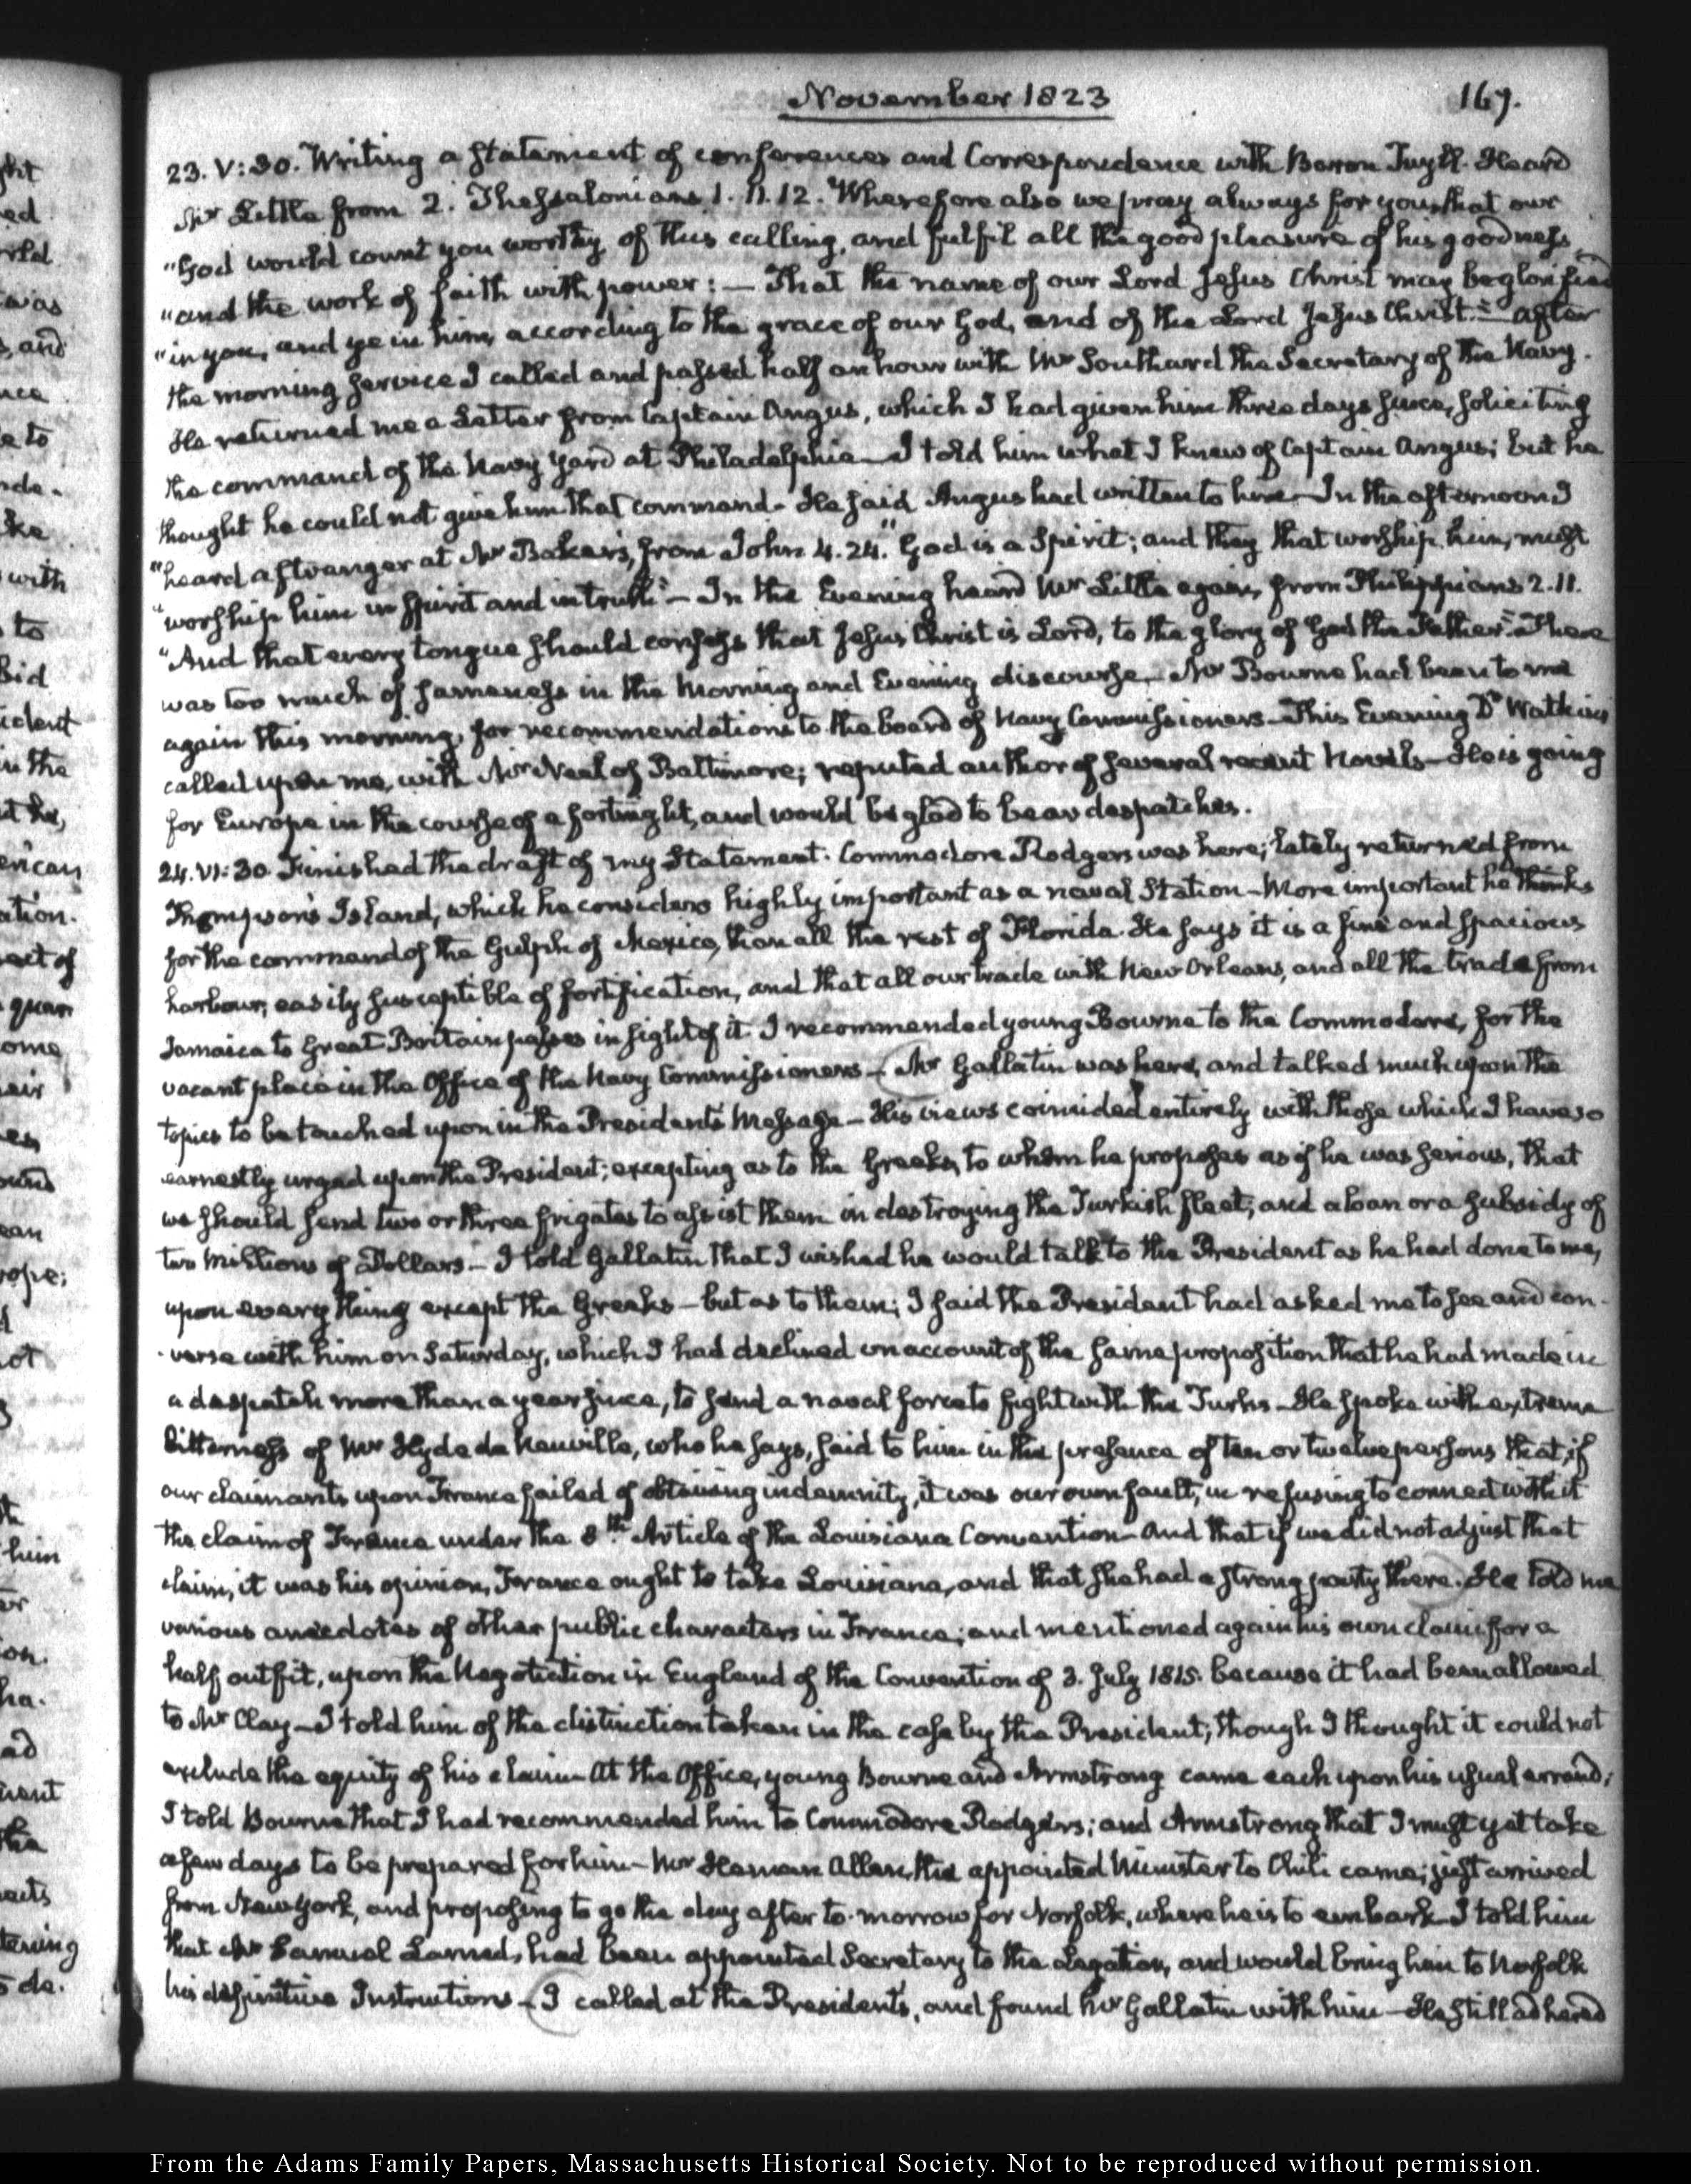 November 1823
167.
23. V:30. Writing a Statement of conferences and Correspondence with Baron Tuyll. Heard
Mr Little from 2. Thessalonians 1. 11. 12. "Wherefore also we pray always for you, that our
"God would count you worthy of this calling, and fulfil all the good pleasure of his goodness,
"and the work of faith with power: — That the name of our Lord Jesus Christ may be glorified
"in you, and ye in him, according to the grace of our God, and of the Lord Jesus Christ." — After
the morning service I called and passed half an hour with Mr Southard the Secretary of the Navy.
He returned me a Letter from Captain Angus, which I had given him three days since, soliciting
the command of the Navy Yard at Philadelphia — I told him what I knew of Captain Angus; but he
thought he could not give him that command. He said Angus had written to him — In the afternoon I
"heard a stranger at Mr Baker's, from John 4. 24. "God is a Spirit; and they that worship him, must
"worship him in Spirit and in truth" — In the Evening heard Mr Little again, from Philippians 2. 11.
"And that every tongue should confess that Jesus Christ is Lord, to the glory of God the Father." There
was too much of sameness in the Morning and Evening discourse. Mr Bourne had been to me
again this morning, for recommendations to the board of Navy Commissioners — This Evening Dr Watkins
called upon me, with Mr Neal of Baltimore; reputed author of several recent Novels — He is going
for Europe in the course of a fortnight, and would be glad to bear despatches.
24. VI:30 Finished the draft of my Statement. Commodore Rodgers was here; lately returned from
Thompson's Island, which he considers highly important as a naval Station — More important he thinks
for the command of the Gulph of Mexico, than all the rest of Florida. He says it is a fine and spacious
harbour, easily susceptible of fortification, and that all our trade with New Orleans, and all the trade from
Jamaica to Great Britain passes in sight of it. I recommended young Bourne to the Commodore, for the
vacant place in the Office of the Navy Commissioners — (Mr Gallatin was here, and talked much upon the
topics to be touched upon in the President's Message — His views coincided entirely with those which I have so
earnestly urged upon the President; excepting as to the Greeks, to whom he proposes as if he was serious, that
we should send two or three frigates to assist them in destroying the Turkish fleet; and a loan or a subsidy of
two Millions of Dollars — I told Gallatin that I wished he would talk to the President as he had done to me,
upon every thing except the Greeks — but as to them; I said the President had asked me to see and con-
verse with him on Saturday, which I had declined on account of the same proposition that he had made in
a despatch more than a year since, to send a naval force to fight with the Turks — He spoke with extreme
bitterness of Mr Hyde de Neuville, who he says, said to him in the presence of ten or twelve persons that, if
our claimants upon France failed of obtaining indemnity, it was our own fault, in refusing to connect with it
the claim of France under the 8th Article of the Louisiana Convention — And that if we did not adjust that
claim, it was his opinion, France ought to take Louisiana, and that she had a strong party there.) He told me
various anecdotes of other public characters in France; and mentioned again his own claim for a
half outfit, upon the Negotiation in England of the Convention of 3. July 1815. because it had been allowed
to Mr Clay — I told him of the distinction taken in the case by the President; though I thought it could not
exclude the equity of his claim — At the Office, young Bourne and Armstrong came each upon his usual errand;
I told Bourne that I had recommended him to Commodore Rodgers; and Armstrong that I must yet take
a few days to be prepared for him — Mr Heman Allen, the appointed Minister to Chili came; just arrived
from New York, and proposing to go the day after to-morrow for Norfolk, where he is to embark — I told him
that Mr Samuel Larned, had been appointed Secretary to the Legation, and would bring him to Norfolk
his definitive Instructions — (I called at the President's, and found Mr Gallatin with him — He still adhered
From the Adams Family Papers, Massachusetts Historical Society. Not to be reproduced without permission.